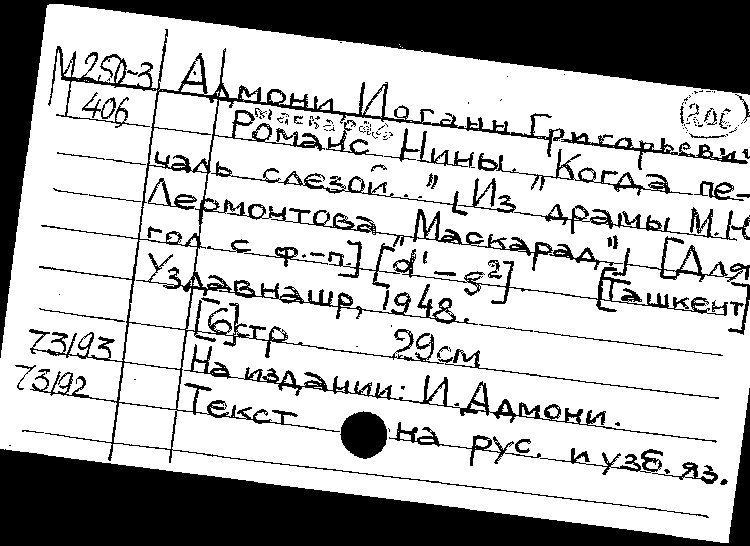 М250-3 Адмони Иоганн Григорьевич
406 206
маскарад
Романс Нины. "Когда пе-
чаль слезой..." [Из драмы М.Ю
Лермонтова "Маскарад".] [Для
гол. с ф.-п.] [d¹ – g²]. [Ташкент]
Уздавнашр, 1948.
[6] стр. 29см
73193 На издании: И. Адмони.
73192 Текст на рус. и узб. яз.